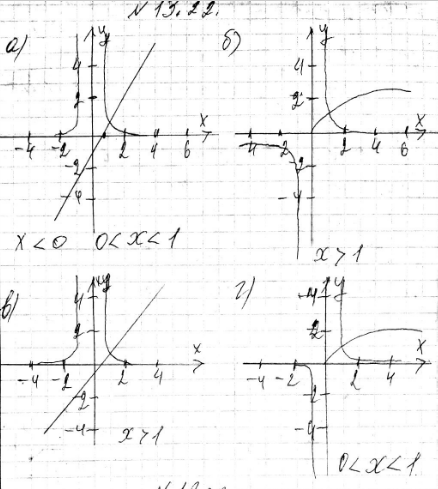 N 19.22.
а) y б) y
4 4
2 2
x x
-4 -2 2 4 6 -4 -2 2 4 6
-2 -2
-4 -4
x<0 0<x<1
x>1
в) y г) y
4 4
2 2
x x
-4 -2 2 4 -4 -2 2 4
-2 -2
-4 -4
x>1
0<x<1